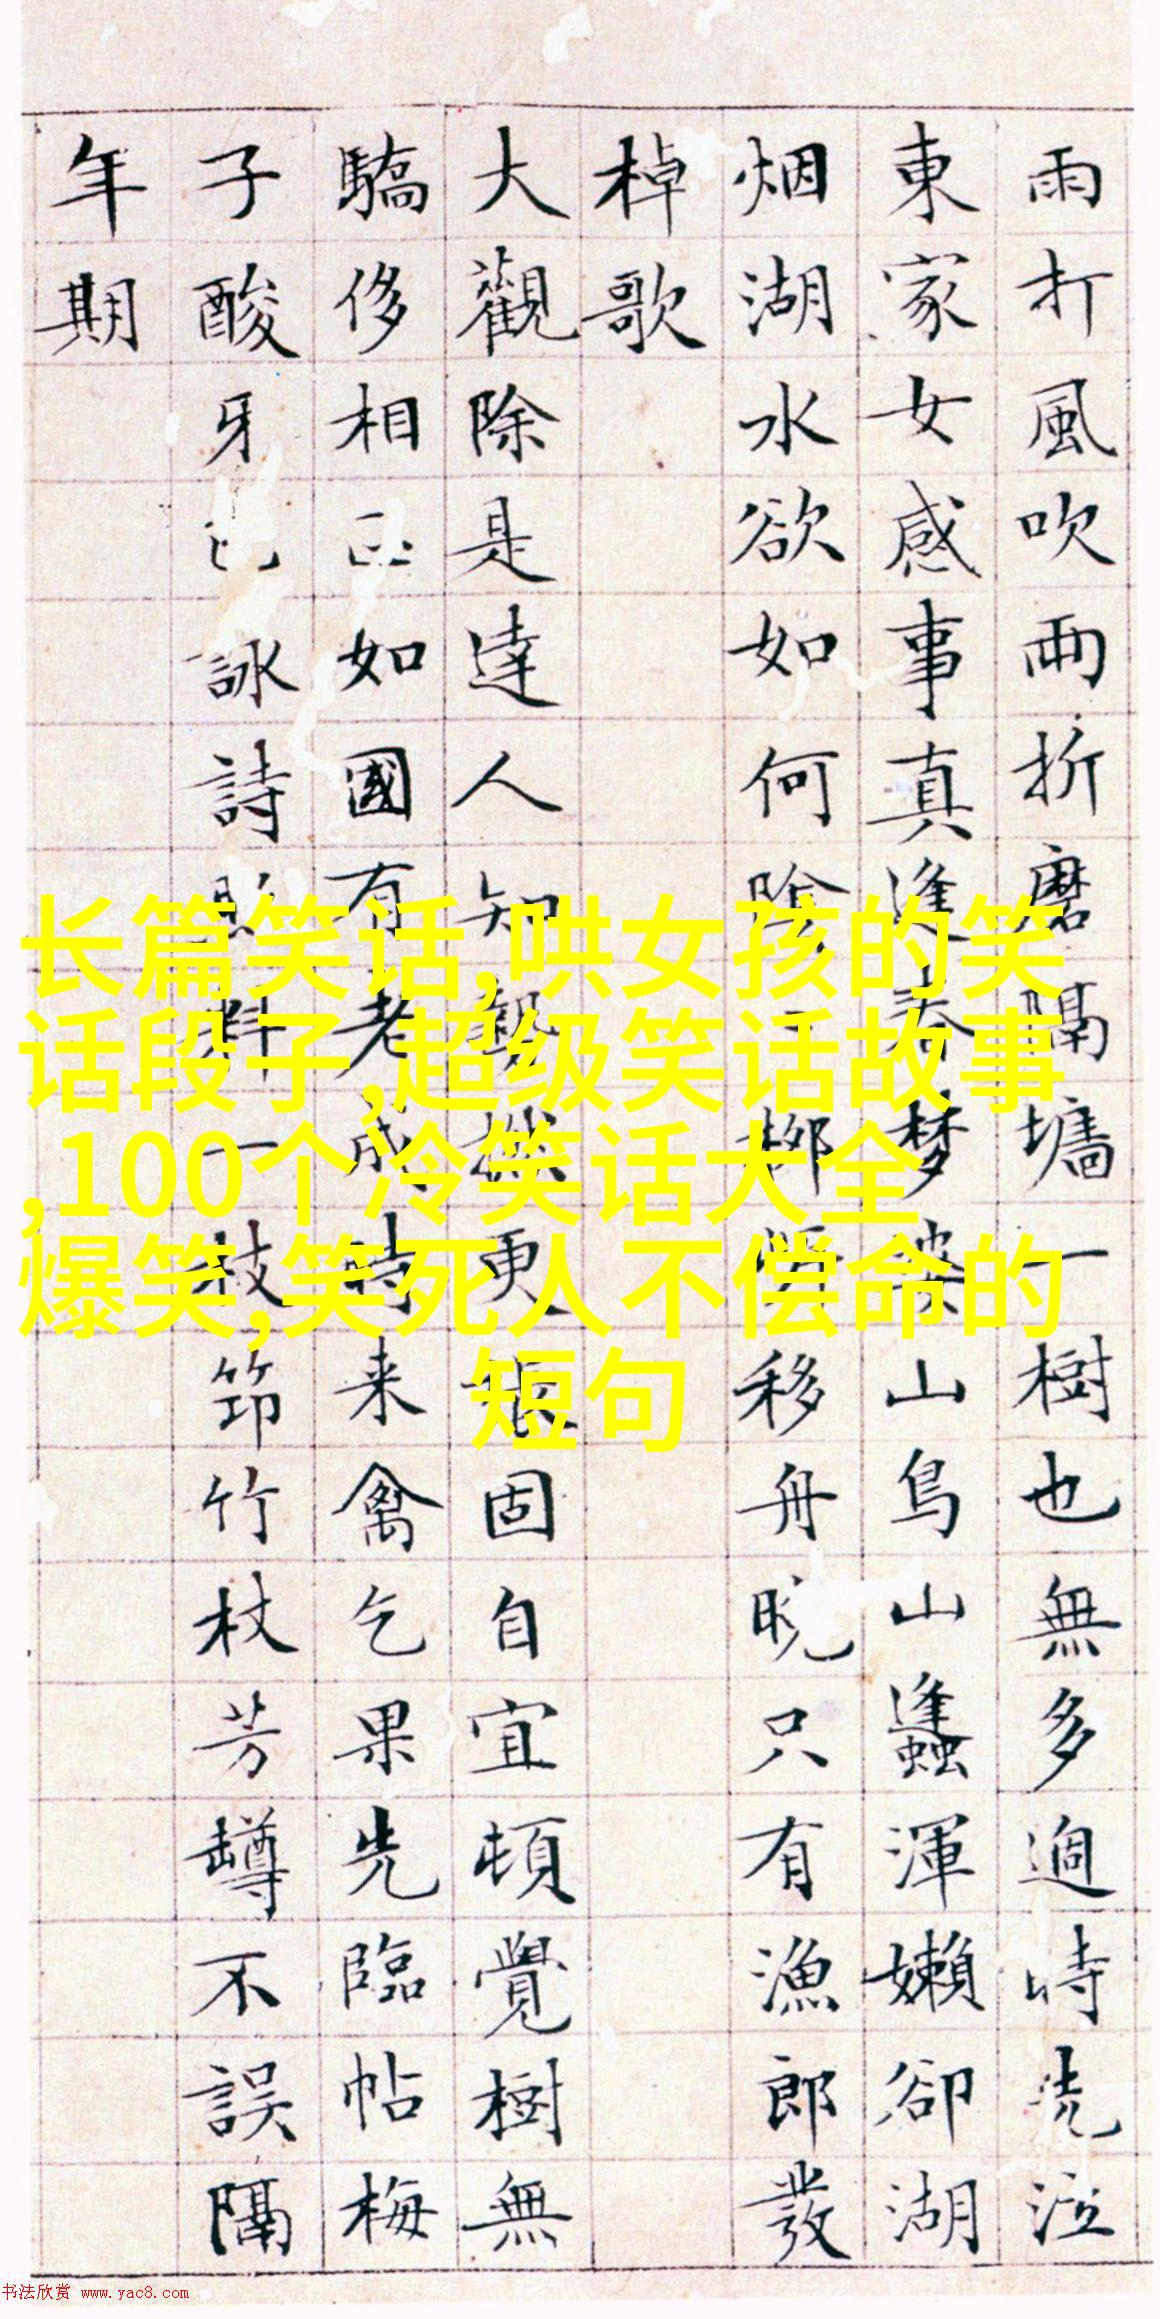 雨打風吹兩折磨隔墻一樹也無多過時洗泣
東家女感事真逢春夢婆山鳥山蠭渾嬾卻湖
烟湖水欲如何陰柳岸移舟晚只有漁郎發
棹歌
大觀除是達人知勢機更固自宜頓覺樹無
驕侈相如國有老成時來禽乞果先臨帖梅
子酸牙詠詩料一枝筇竹杖芳罇不誤隔
年期
长篇笑话,哄女孩的笑
话段子,超级笑话故事
,100个冷笑话大全
爆笑,笑死人不偿命的
短句
书法欣赏 www.yac8.com